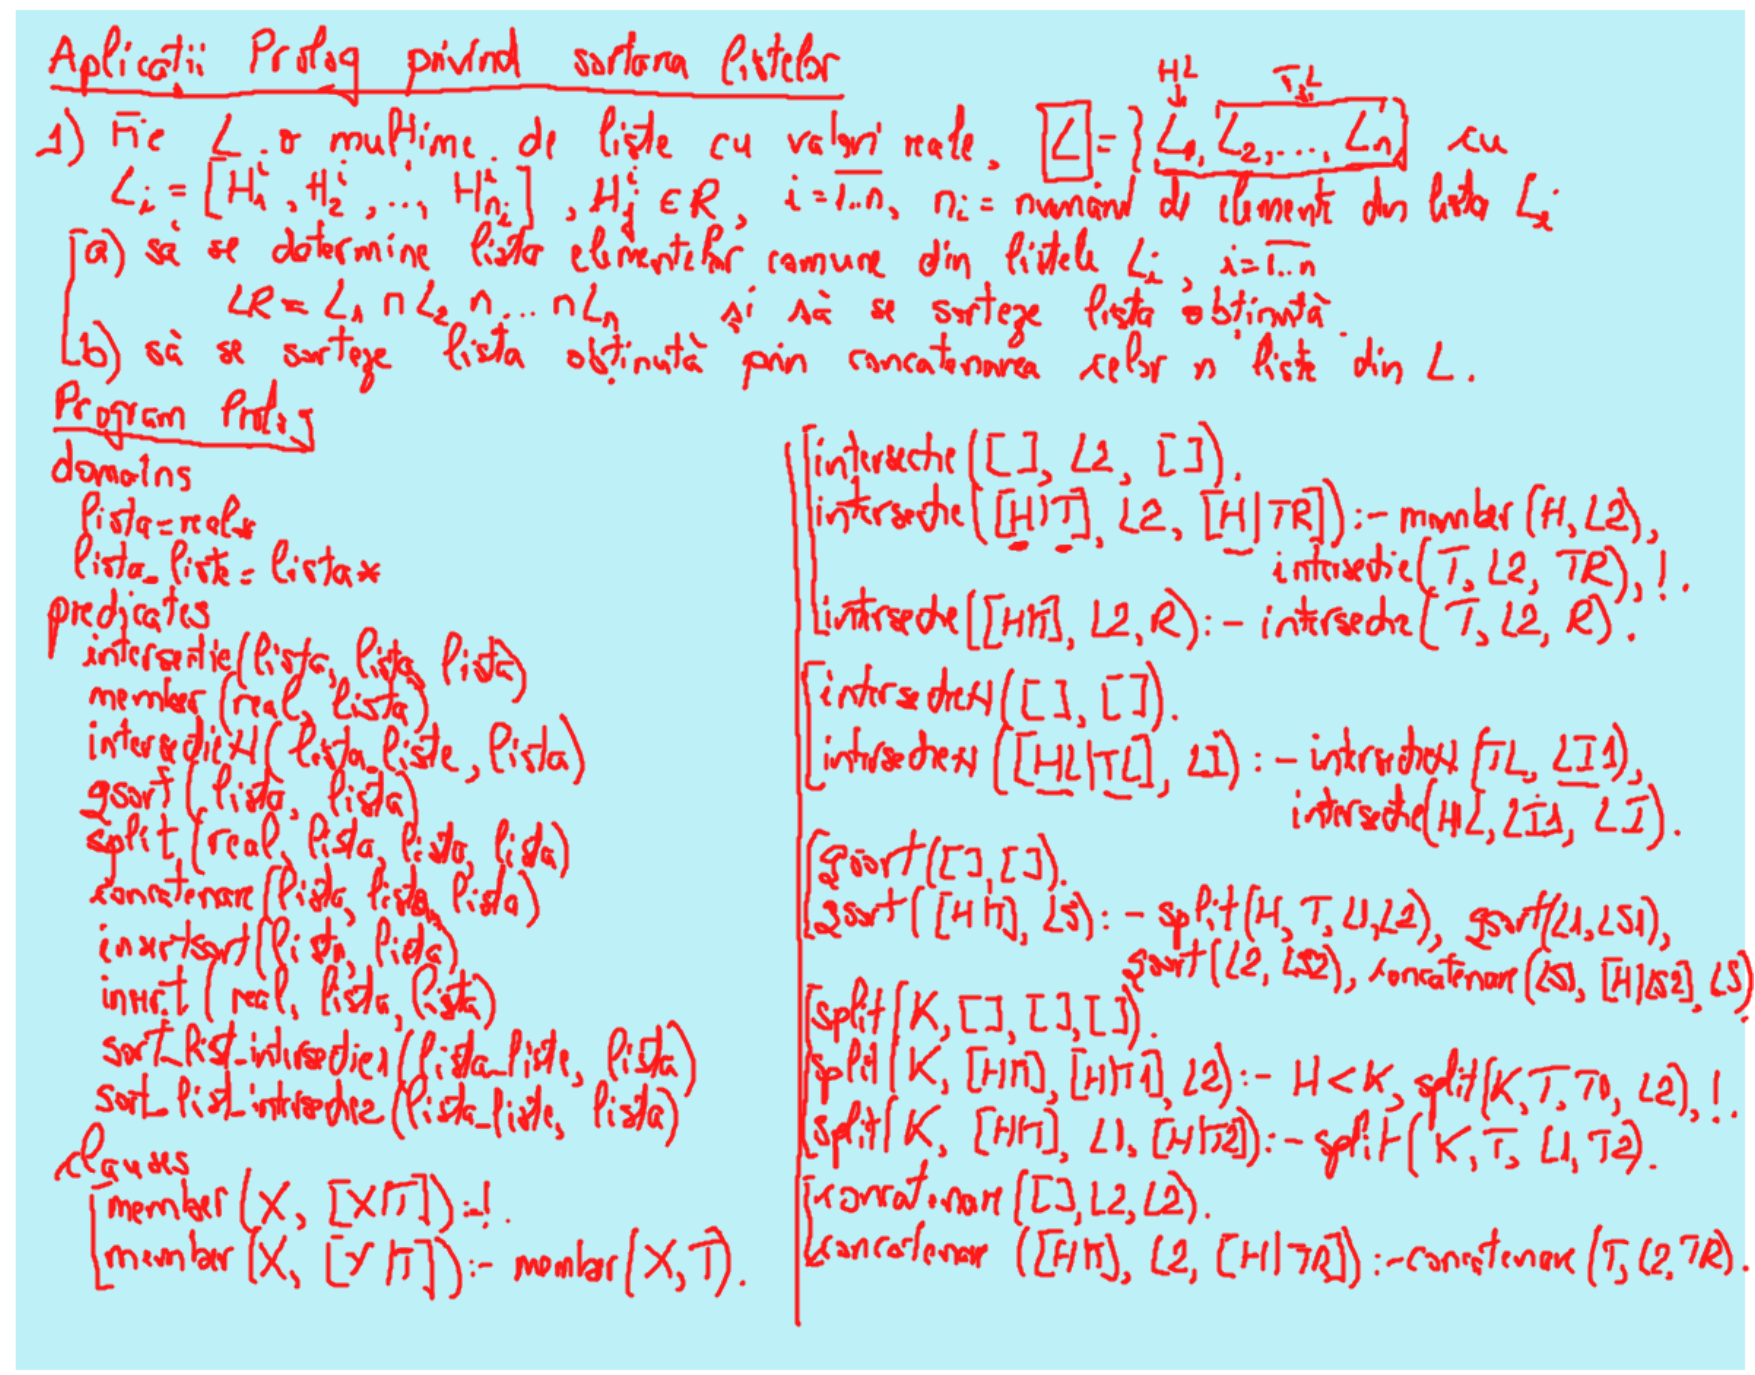 Aplicatii Prolog privind sortarea listelor
HL TL
1) Fie L o multime de liste cu valori reale, L = {L1, L2, ..., Ln} cu
Li = [H1^i, H2^i, ..., Hni^i], Hj^i ∈ R, i=1..n, ni = numărul de elemente din lista Li
a) să se determine lista elementelor comune din listele Li, i=1..n
LR = L1 ∩ L2 ∩ ... ∩ Ln și să se sorteze lista obținută.
b) să se sorteze lista obținută prin concatenarea celor n liste din L.
Program Prolog
domains
lista=real*
lista_liste=lista*
predicates
intersectie(lista, lista, lista)
member(real, lista)
intersectieN(lista_liste, lista)
qsort(lista, lista)
split(real, lista, lista, lista)
concatenare(lista, lista, lista)
insertsort(lista, lista)
insert(real, lista, lista)
sort_list_intersectie1(lista_liste, lista)
sort_list_intersectie2(lista_liste, lista)
clauses
member(X, [X|T]):-!.
member(X, [Y|T]):- member(X,T).
intersectie([], L2, []).
intersectie([H|T], L2, [H|TR]):- member(H,L2),
intersectie(T, L2, TR), !.
intersectie([H|T], L2, R):- intersectie(T, L2, R).
intersectieN([], []).
intersectieN([HL|TL], LI):- intersectieN(TL, LI1),
intersectie(HL, LI1, LI).
qsort([],[]).
qsort([H|T], LS):- split(H,T,L1,L2), qsort(L1,LS1),
qsort(L2, LS2), concatenare(LS1, [H|LS2], LS).
split(K, [], [], []).
split(K, [H|T], [H|T1], L2):- H<K, split(K,T,T1, L2), !.
split(K, [H|T], L1, [H|T2]):- split(K,T, L1,T2).
concatenare([],L2,L2).
concatenare([H|T], L2, [H|TR]):-concatenare(T,L2,TR).